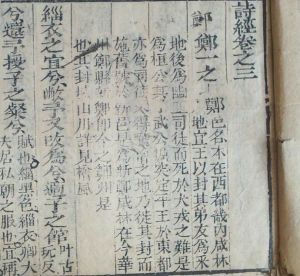 詩經卷之三
鄭一之 鄭邑名本在西都畿內咸林
之地宣王以封其弟友為采
地後為幽王司徒而死於犬戎之難是
為桓公其子武公掘突定平王於東都
亦為司徒又得虢檜之地乃徙其封而
施舊號於新邑是為新鄭咸林在今華
州鄭縣新鄭即今之鄭州是
也其封域山川詳見檜風
緇衣之宜兮敝予又改為兮適子之館叶古
玩反
兮還予授子之粲兮 賦也緇黑色緇衣卿大
夫居私朝之服也宜稱